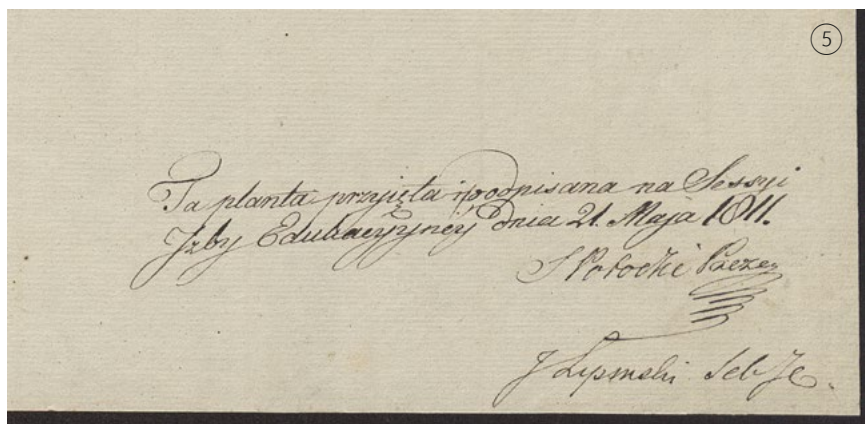 5
Ta planta przyięta i podpisana na Sessyi
Jzby Edukacyyney dnia 21. Maja 1811.
S Potocki Prezes
J Lipinski Sek JE.